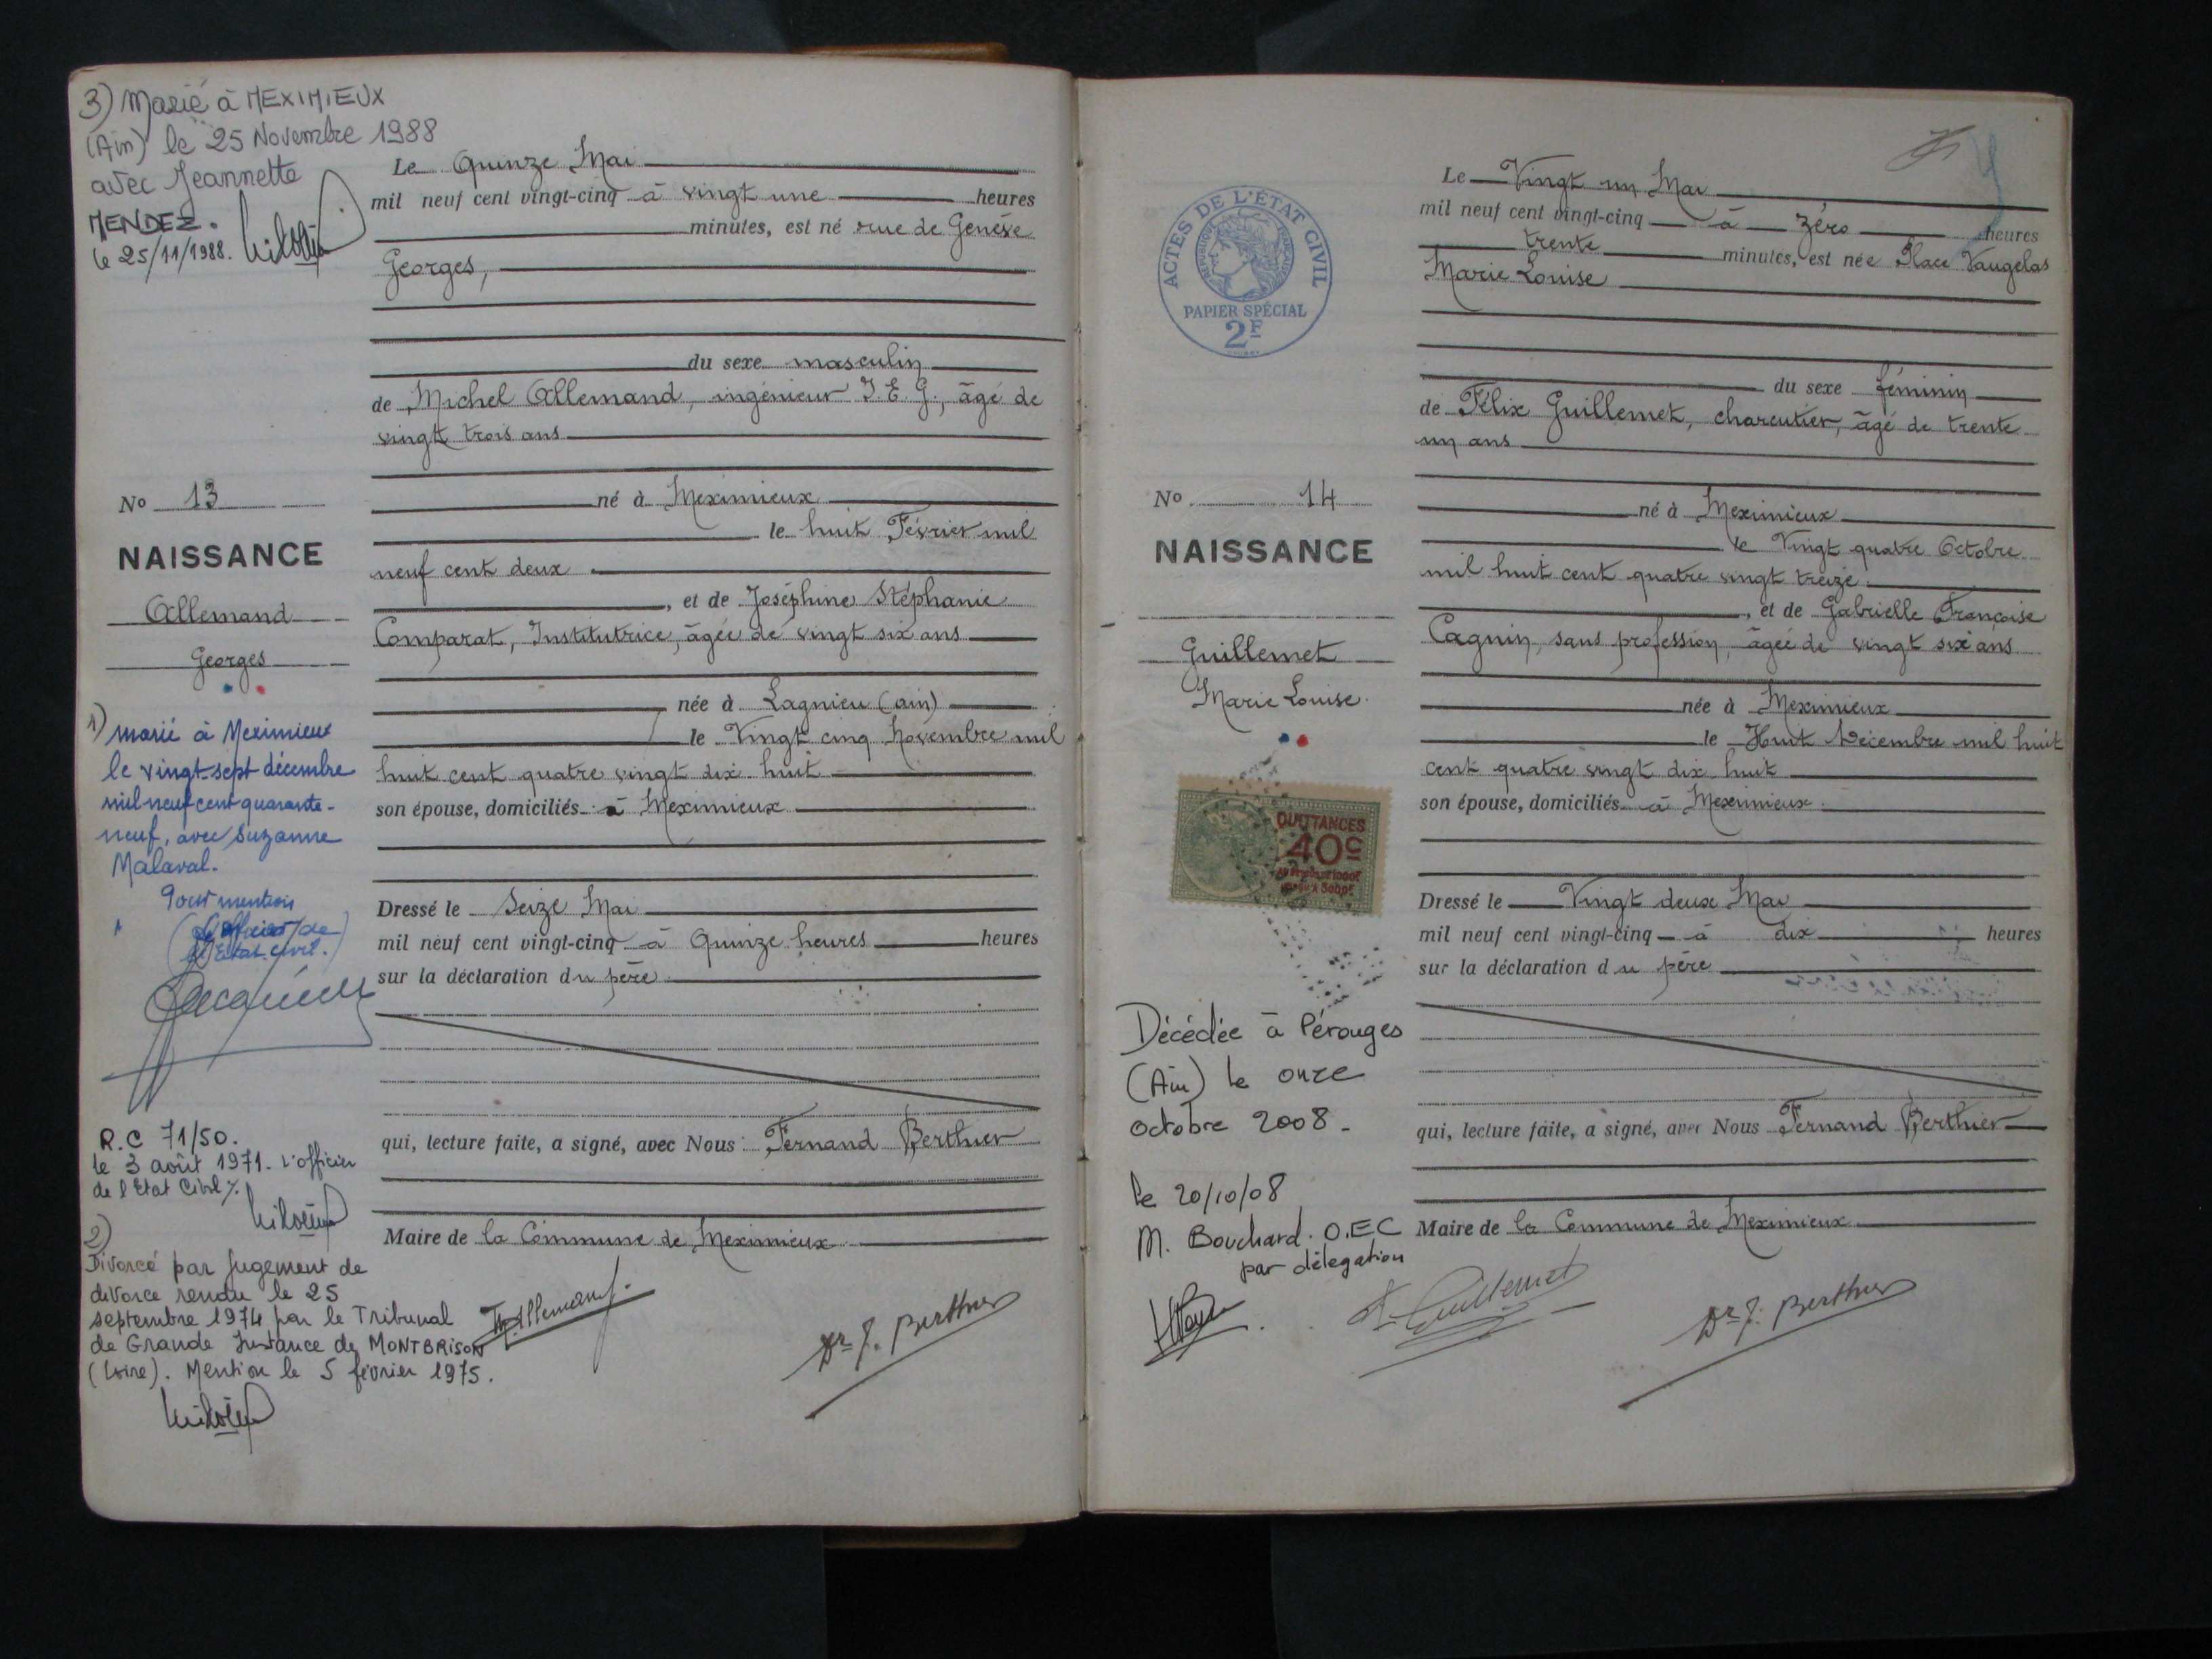 3) Marié à MEXIMIEUX
(Ain) le 25 Novembre 1988
avec Jeannette
MENDEZ.
le 25/11/1988.
Le Quinze Mai
mil neuf cent vingt-cinq à vingt une heures
minutes, est né rue de Genève
Georges,
du sexe masculin
de Michel Allemand, ingénieur I.E.G., âgé de
vingt trois ans
né à Meximieux
le huit Février mil
neuf cent deux
, et de Joséphine Stéphanie
Comparat, Institutrice, âgée de vingt six ans
née à Lagnieu (ain)
le Vingt cinq Novembre mil
huit cent quatre vingt dix huit
son épouse, domiciliés à Meximieux
Dressé le Seize Mai
mil neuf cent vingt-cinq à Quinze heures heures
sur la déclaration du père
qui, lecture faite, a signé, avec Nous Fernand Berthier
Maire de la Commune de Meximieux
Dr F. Berthier
No 13
NAISSANCE
Allemand
Georges
1) marié à Meximieux
le vingt-sept décembre
mil neuf cent quarante-
neuf, avec Suzanne
Malaval.
Pour mention
(L'officier de
l'Etat civil.)
R.C 71/50.
le 3 août 1971. L'officier
de l'Etat Civil %.
2)
Divorcé par jugement de
divorce rendu le 25
septembre 1974 par le Tribunal
de Grande Instance de MONTBRISON
(Loire). Mention le 5 février 1975.
Le Vingt un Mai
mil neuf cent vingt-cinq à zéro heures
trente minutes, est née Place Vaugelas
Marie Louise
du sexe féminin
de Félix Guillemet, charcutier, âgé de trente
un ans
né à Meximieux
le Vingt quatre Octobre
mil huit cent quatre vingt treize
, et de Gabrielle Françoise
Cagnin, sans profession, âgée de vingt six ans
née à Meximieux
le Huit Décembre mil huit
cent quatre vingt dix huit
son épouse, domiciliés à Meximieux
Dressé le Vingt deux Mai
mil neuf cent vingt-cinq à dix heures
sur la déclaration du père
qui, lecture faite, a signé, avec Nous Fernand Berthier
Maire de la Commune de Meximieux
F. Guillemet
Dr F. Berthier
ACTES DE L'ÉTAT CIVIL
RÉPUBLIQUE FRANÇAISE
PAPIER SPÉCIAL
2F
No 14
NAISSANCE
Guillemet
Marie Louise
QUITTANCES
40c
Décédée à Pérouges
(Ain) le onze
octobre 2008.
le 20/10/08
M. Bouchard. O.EC
par délégation